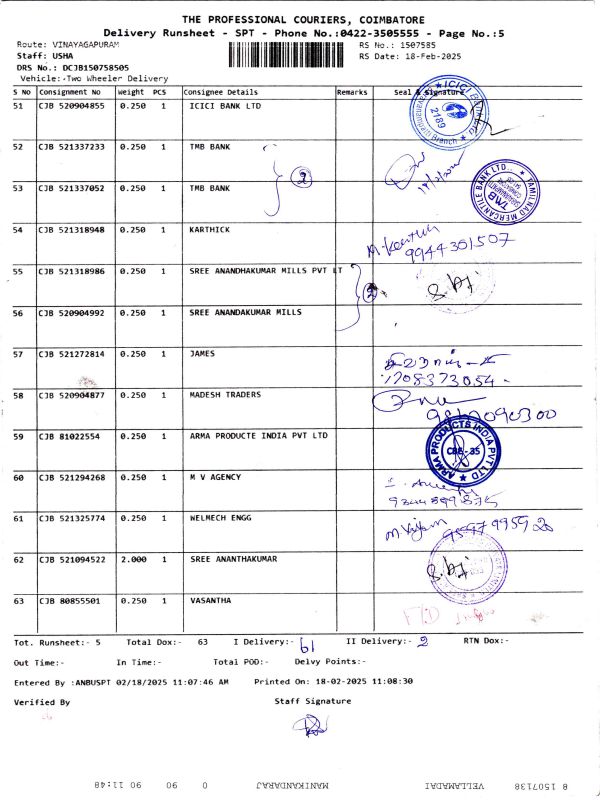 THE PROFESSIONAL COURIERS, COIMBATORE
Delivery Runsheet - SPT - Phone No.:0422-3505555 - Page No.:5
Route: VINAYAGAPURAM RS No.: 1507585
Staff: USHA RS Date: 18-Feb-2025
DRS No.: DCJB150758505
Vehicle:-Two Wheeler Delivery
S No Consignment No Weight PCS Consignee Details Remarks Seal & Signature
51 CJB 520904855 0.250 1 ICICI BANK LTD
ICICI BANK
2189
Branch
52 CJB 521337233 0.250 1 TMB BANK
53 CJB 521337052 0.250 1 TMB BANK
2
TAMILNAD MERCANTILE BANK LTD.
TMB
54 CJB 521318948 0.250 1 KARTHICK
M. Karthick
9944301507
55 CJB 521318986 0.250 1 SREE ANANDHAKUMAR MILLS PVT LT
2
56 CJB 520904992 0.250 1 SREE ANANDAKUMAR MILLS
57 CJB 521272814 0.250 1 JAMES
58 CJB 520904877 0.250 1 MADESH TRADERS
59 CJB 81022554 0.250 1 ARMA PRODUCTE INDIA PVT LTD
ARMA PRODUCTS INDIA PVT LTD
CBE-35
60 CJB 521294268 0.250 1 M V AGENCY
61 CJB 521325774 0.250 1 WELMECH ENGG
62 CJB 521094522 2.000 1 SREE ANANTHAKUMAR
63 CJB 80855501 0.250 1 VASANTHA
Tot. Runsheet:- 5 Total Dox:- 63 I Delivery:- 61 II Delivery:- 2 RTN Dox:-
Out Time:- In Time:- Total POD:- Delvy Points:-
Entered By :ANBUSPT 02/18/2025 11:07:46 AM Printed On: 18-02-2025 11:08:30
Verified By Staff Signature
8 1507138 VELLAMADAI MANIKANDARAJ 0 90 90 11:48